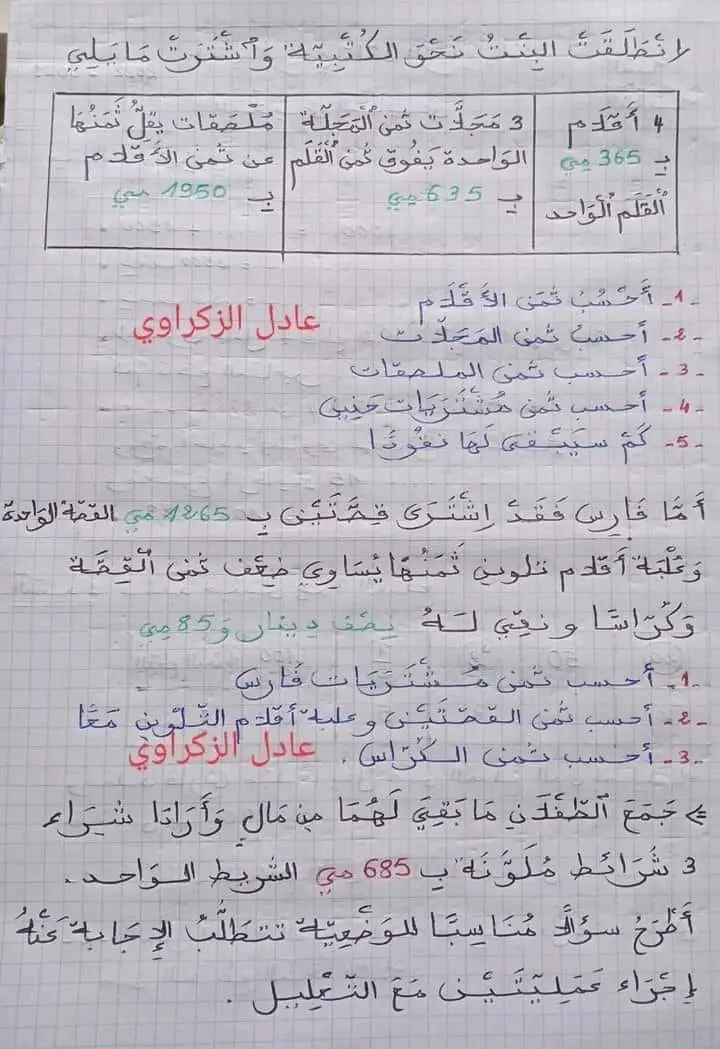 انْطَلَقَتْ البِنْتُ نَحْوَ الكُتْبِيّة وَاشْتَرَتْ مَا يَلِي
4 أَقْلَام
بِ 365 مي
القَلَم الوَاحد
3 مَجَلَّات ثمن المَجَلّة
الوَاحدة يَفُوق ثمن القَلَم
بِ 635 مي
مُلْصَقات يَقِلُّ ثَمَنُهَا
عن ثمن الأقْلام
بِ 1950 مي
1- أَحْسُبُ ثَمَن الأَقْلَام
2- أحسبُ ثمن المَجَلَّات
عادل الزكراوي
3- أحسب ثمن الملصقات
4- أحسب ثمن مُشْتَرَيَات
5- كَمْ سَيَبْقَى لَهَا نقُودًا
أَمَّا فَارس فَقَدْ اِشْتَرَى قِصَّتَيْن بِ 1265 مي القصّة الوَاحدة
وَعُلْبَة أَقْلَام تلوين ثَمَنُهَا يُسَاوِي ضِعْف ثمن القِصَّة
وَكُرَّاسًا و بَقِيَ لَهُ نِصْف دِينار وَ 85 مي
1- أحسب ثمن مُشْتَرَيَات فَارس
2- أحسب ثمن القصّتَيْن و علبة أقلام التّلوين مَعًا
3- أحسب ثمن الكُرّاس.
عادل الزكراوي
جَمَعَ الطّفْلَان مَا بَقِيَ لَهُمَا مِن مَال وَأَرَادَا شِرَاء
3 شَرَائط مُلَوَّنَة بِ 685 مي الشريط الوَاحد.
أَطْرَحُ سؤالًا مُنَاسِبًا للوَضْعِيّة تتطَلَّبُ الإِجَابة عَنْهُ
إِجْرَاء عَمَلِيَّتَيْن مَعَ التّعْلِيل.